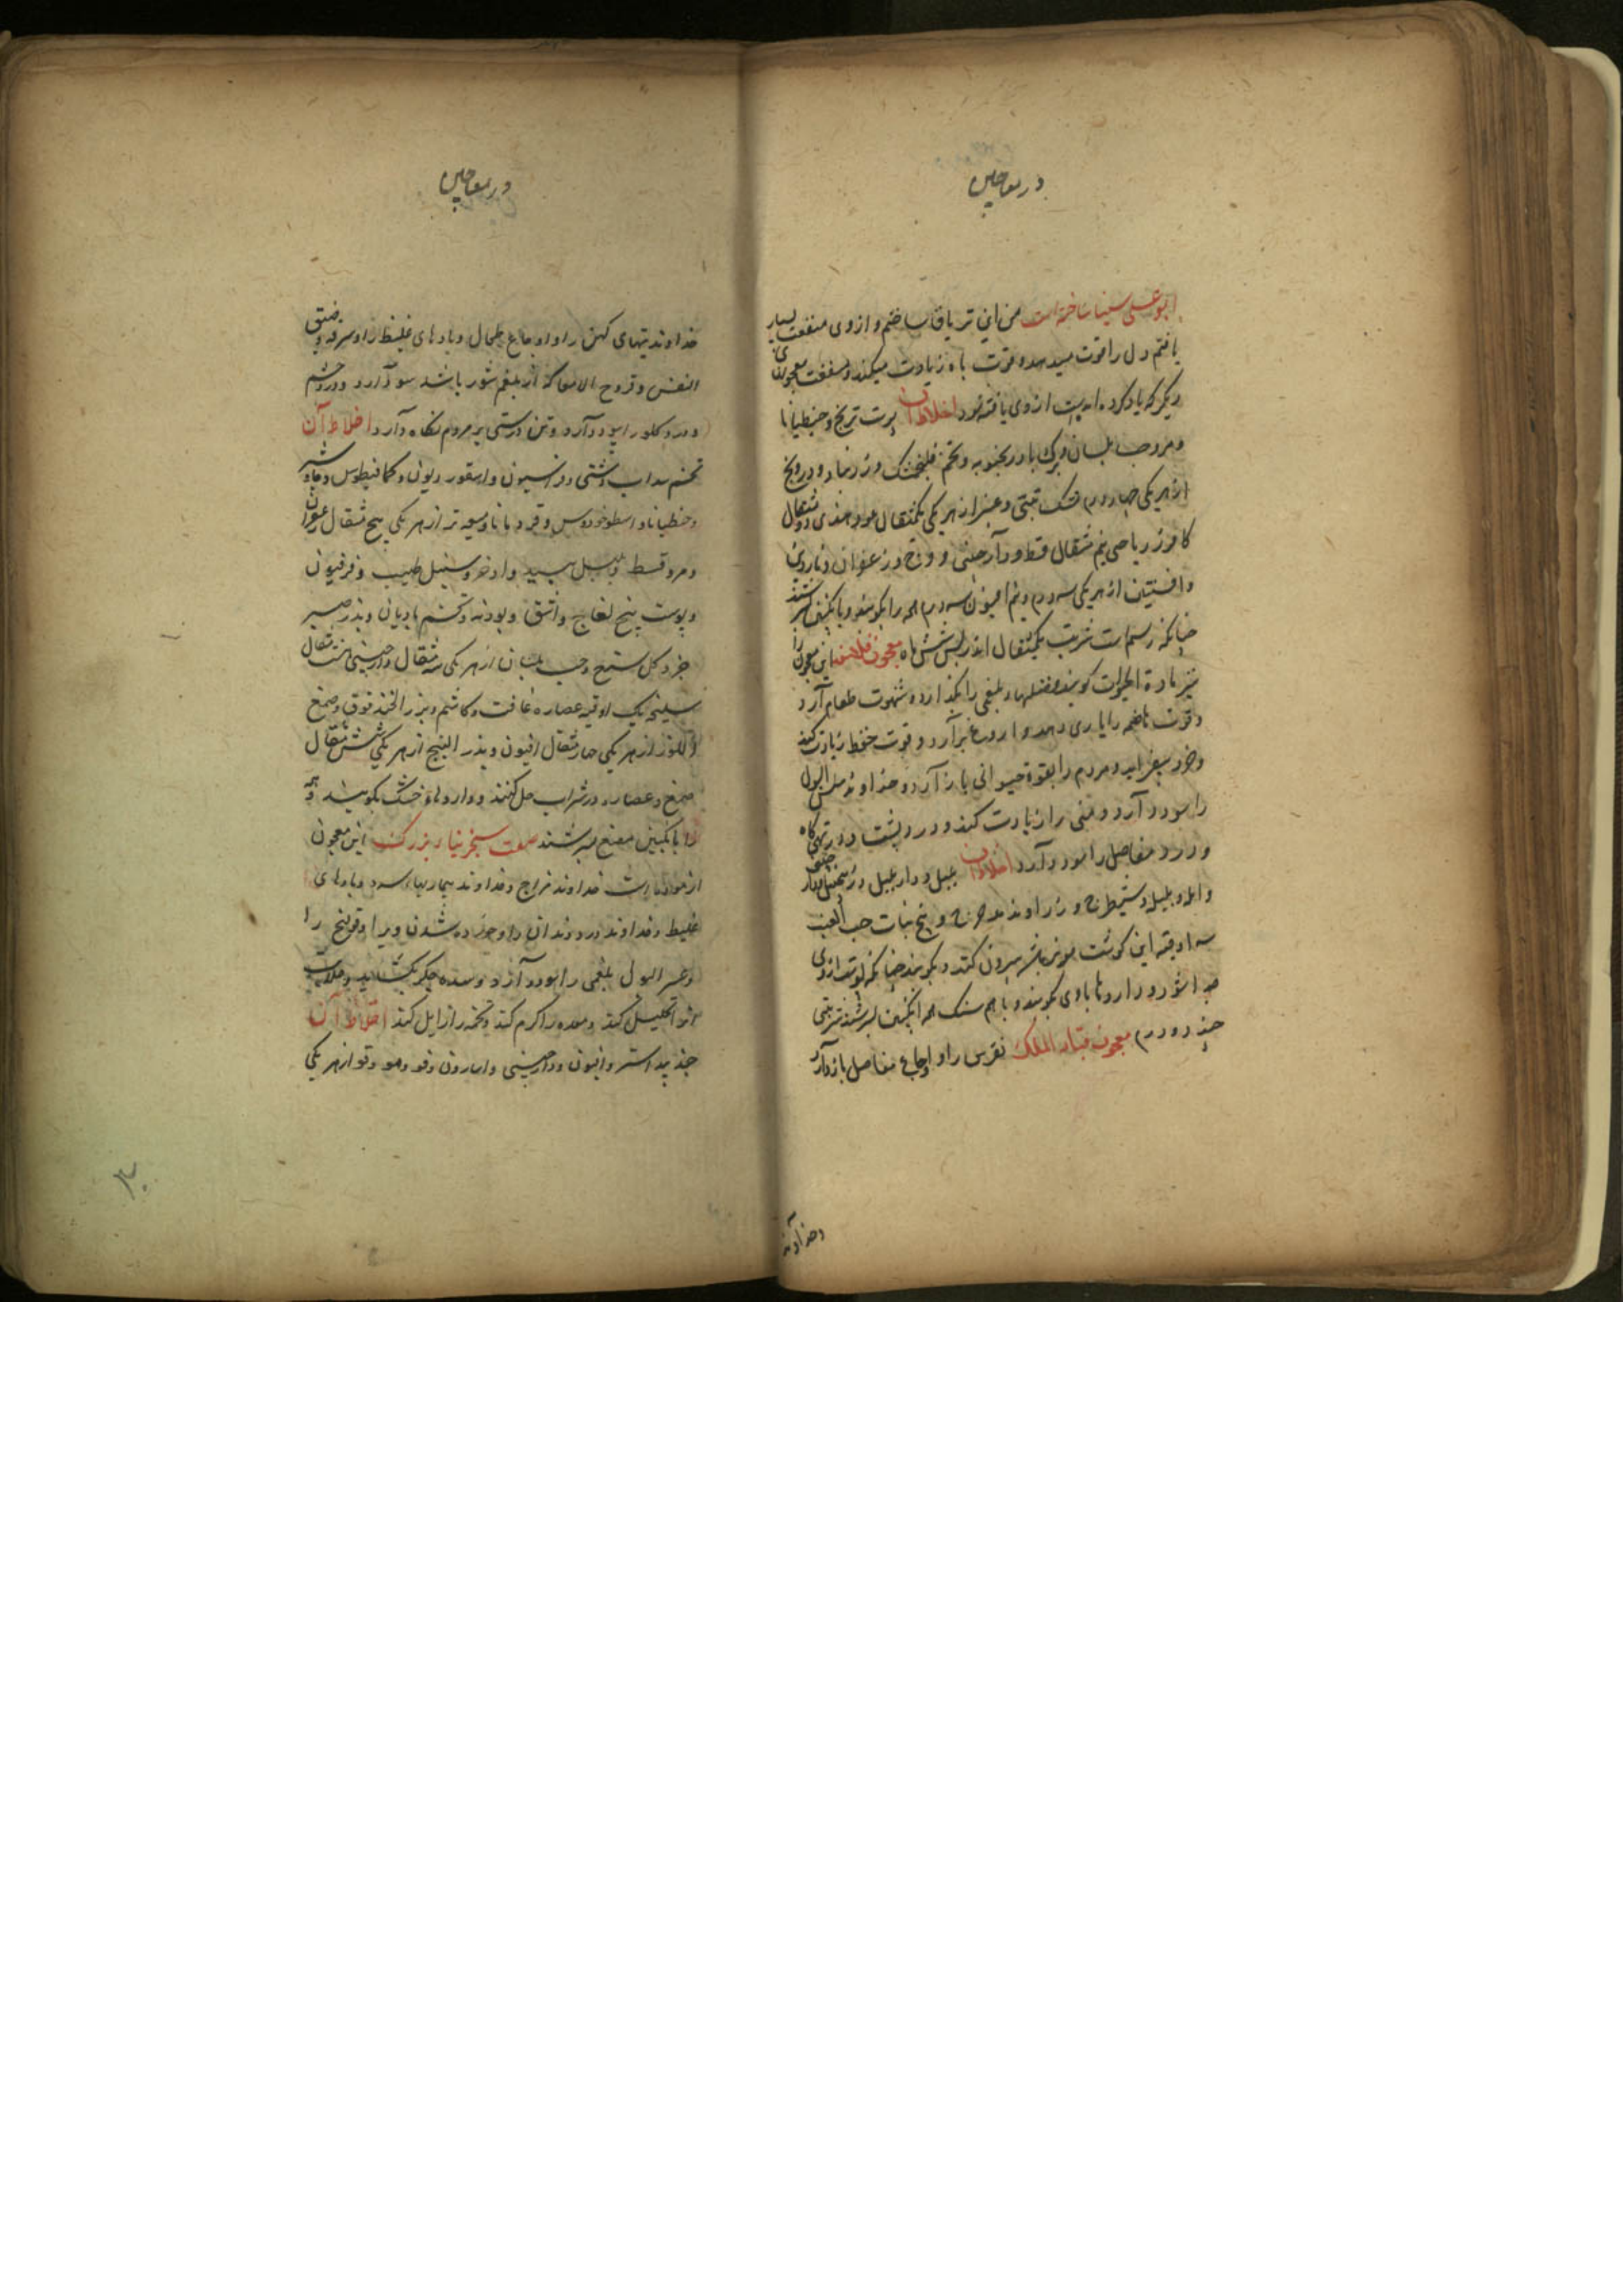 در معاجین
ابو علی سینا ساخته است من این تریاق ساختم و از وی منفعت بسیار
یافتم دل را قوت میدهد و قوت باه زیادت میکند و منفعت معجونهای
دیگر که یاد کرده از وی یافته شود اخلاط آن پوست ترنج و جنطیانا
و مر و حب بلسان و برگ بادرنجبویه و تخم فلنجمشک و زرنباد و درونج
از هر یکی چهار درم مشک تبتی و عنبر از هر یکی یکمثقال عود هندی دو مثقال
کافور ریاحی نیم مثقال قسط و دارچینی و وج و زعفران و ناردین
و افسنتین از هر یکی سه درم و نیم افیون سه درم همه را بکوبند و بانگبین بسرشند
چنانکه رسم است شربت یکمثقال اندر پس شش ماه معجون فلاسفه این معجون را
نیز مادة الحیوات کویند و فضلهاء بلغمی را بگذارد و شهوت طعام آرد
و قوت هاضمه را یاری دهد و اروغ برآرد و قوت حفظ زیادت کند
و خرد بیفزاید و مردم را بقوة حیوانی باز آرد و خداوند سلس البول
را سود دارد و منی را زیادت کند و درد پشت و درد تهی کاه
و درد مفاصل را سود دارد اخلاط آن پلپل و دارپلپل و زنجبیل و دارچینی
و آمله و بلیله و شیطرج و زراوند مدحرج و بیخ نبات حب العنب
سه اوقیه این کوشت مویز باشه بیرون کنند و بکوبند چنانکه قوت از وی
جدا شود و داروها با وی بکوبند و با هم سنک همه انگبین بسرشند شربتی
چند دو درم معجون قباد الملک نقرس را و اوجاع مفاصل باز دارد
و خداوند
در معاجین
خداوند تبهای کهن را و اوجاع طحال و بادهای غلیظ را و سرفه و ضیق
النفس و قروح الامعا که از بلغم شور باشد سود دارد و درد چشم
و درد کلو را سود دارد و تن درستی بر مردم نکاه دارد اخلاط آن
تخم سداب دشتی و فراسیون و اسقوردیون و کمافیطوس و جاوشیر
و جنطیانا و اسطوخودوس و قردمانا و میعه تر از هر یکی پنج مثقال زعفران
و مر و قسط و پلپل سپید و اذخر و سنبل طیب و فرفیون
و پوست بیخ لفاح و اشق و پودنه و تخم بادیان و بذر
جزر و کل سرخ و حب بلسان از هر یکی سه مثقال دارچینی هشت مثقال
سلیخه یک اوقیه عصاره غافت و کاشم و بزر الخندقوق و صمغ
اللوز از هر یکی چهار مثقال افیون و بذر البنج از هر یکی شش مثقال
صمغ و عصاره در شراب حل کنند و داروهاء خشک بکوبند و همه
را بانگبین مصفی بسرشند صفت سجزنیا بزرک این معجون
از مولد است خداوند مزاج و خداوند بیماریهاء سرد و بادهای
غلیظ و خداوند درد دندان و خورده شدن ویرا و قولنج را
و عسر البول بلغمی را سود دارد و سده جکر بکشاید و صلابت
او را تحلیل کند و معده را کرم کند و تخمه را زایل کند اخلاط آن
جندبیدستر و افیون و دارچینی و اسارون و فو و مو و دوقو از هر یکی